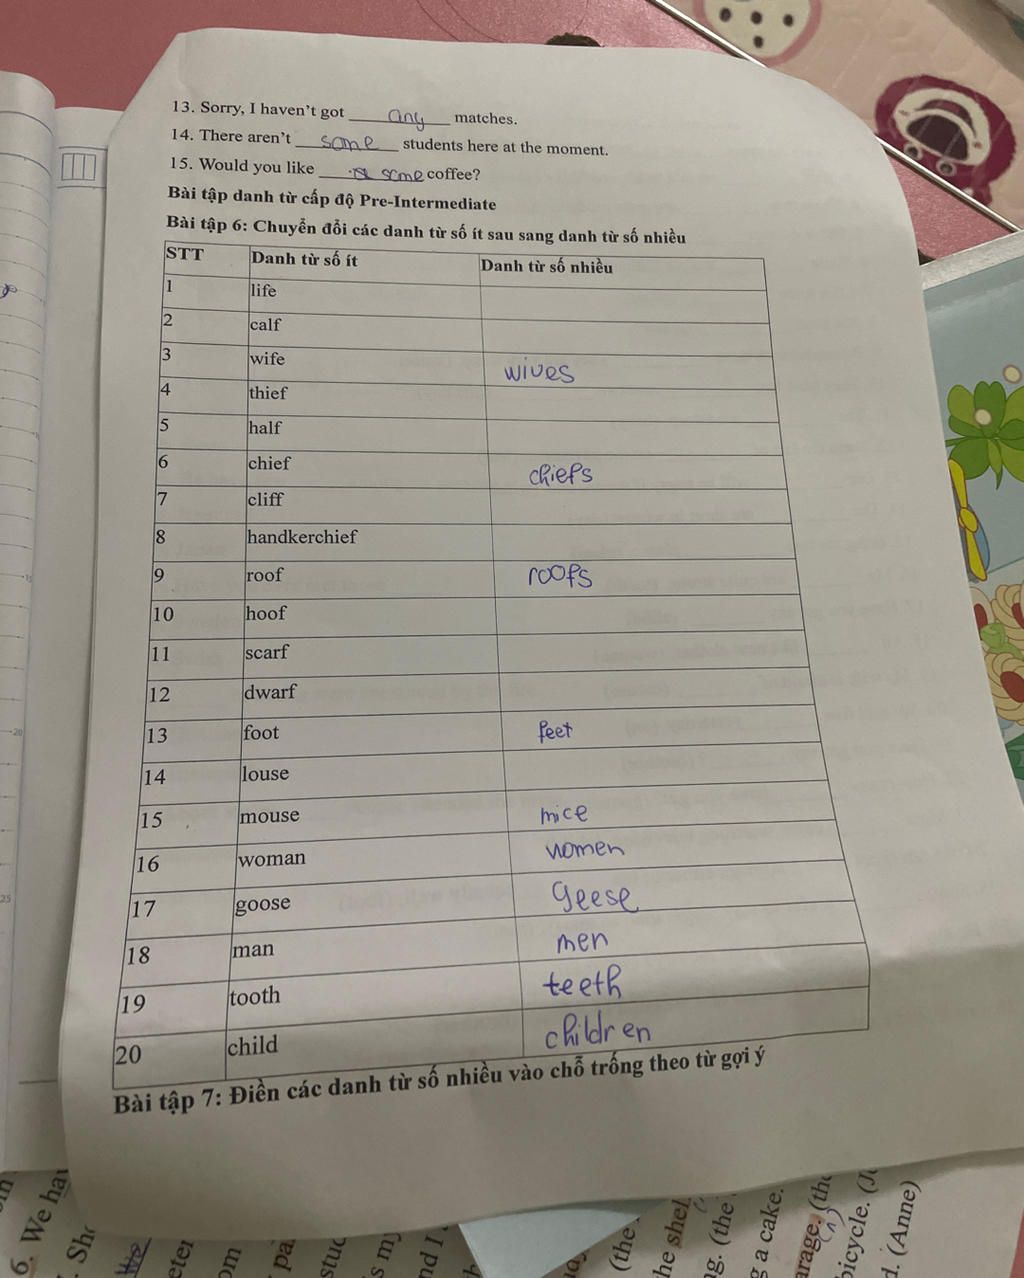 13. Sorry, I haven't got any matches.
14. There aren't some students here at the moment.
15. Would you like some coffee?
Bài tập danh từ cấp độ Pre-Intermediate
Bài tập 6: Chuyển đổi các danh từ số ít sau sang danh từ số nhiều
STT Danh từ số ít Danh từ số nhiều
1 life
2 calf
3 wife wives
4 thief
5 half
6 chief chiefs
7 cliff
8 handkerchief
9 roof roofs
10 hoof
11 scarf
12 dwarf
13 foot feet
14 louse
15 mouse mice
16 woman women
17 goose geese
18 man men
19 tooth teeth
20 child children
Bài tập 7: Điền các danh từ số nhiều vào chỗ trống theo từ gợi ý
6. We
(the
g. (the
g a cake.
bicycle.
d. (Anne)